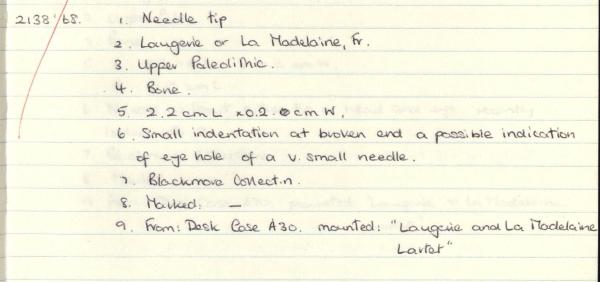 2138'68. 1. Needle tip
2. Laugerie or La Madelaine, Fr.
3. Upper Paleolithic.
4. Bone.
5. 2.2cm L x 0.2.0cm W.
6. Small indentation at broken end a possible indication
of eye hole of a v. small needle.
7. Blackmore Collectin.
8. Marked: —
9. From: Desk Case A30. mounted: "Laugerie and La Madelaine
Lartet"